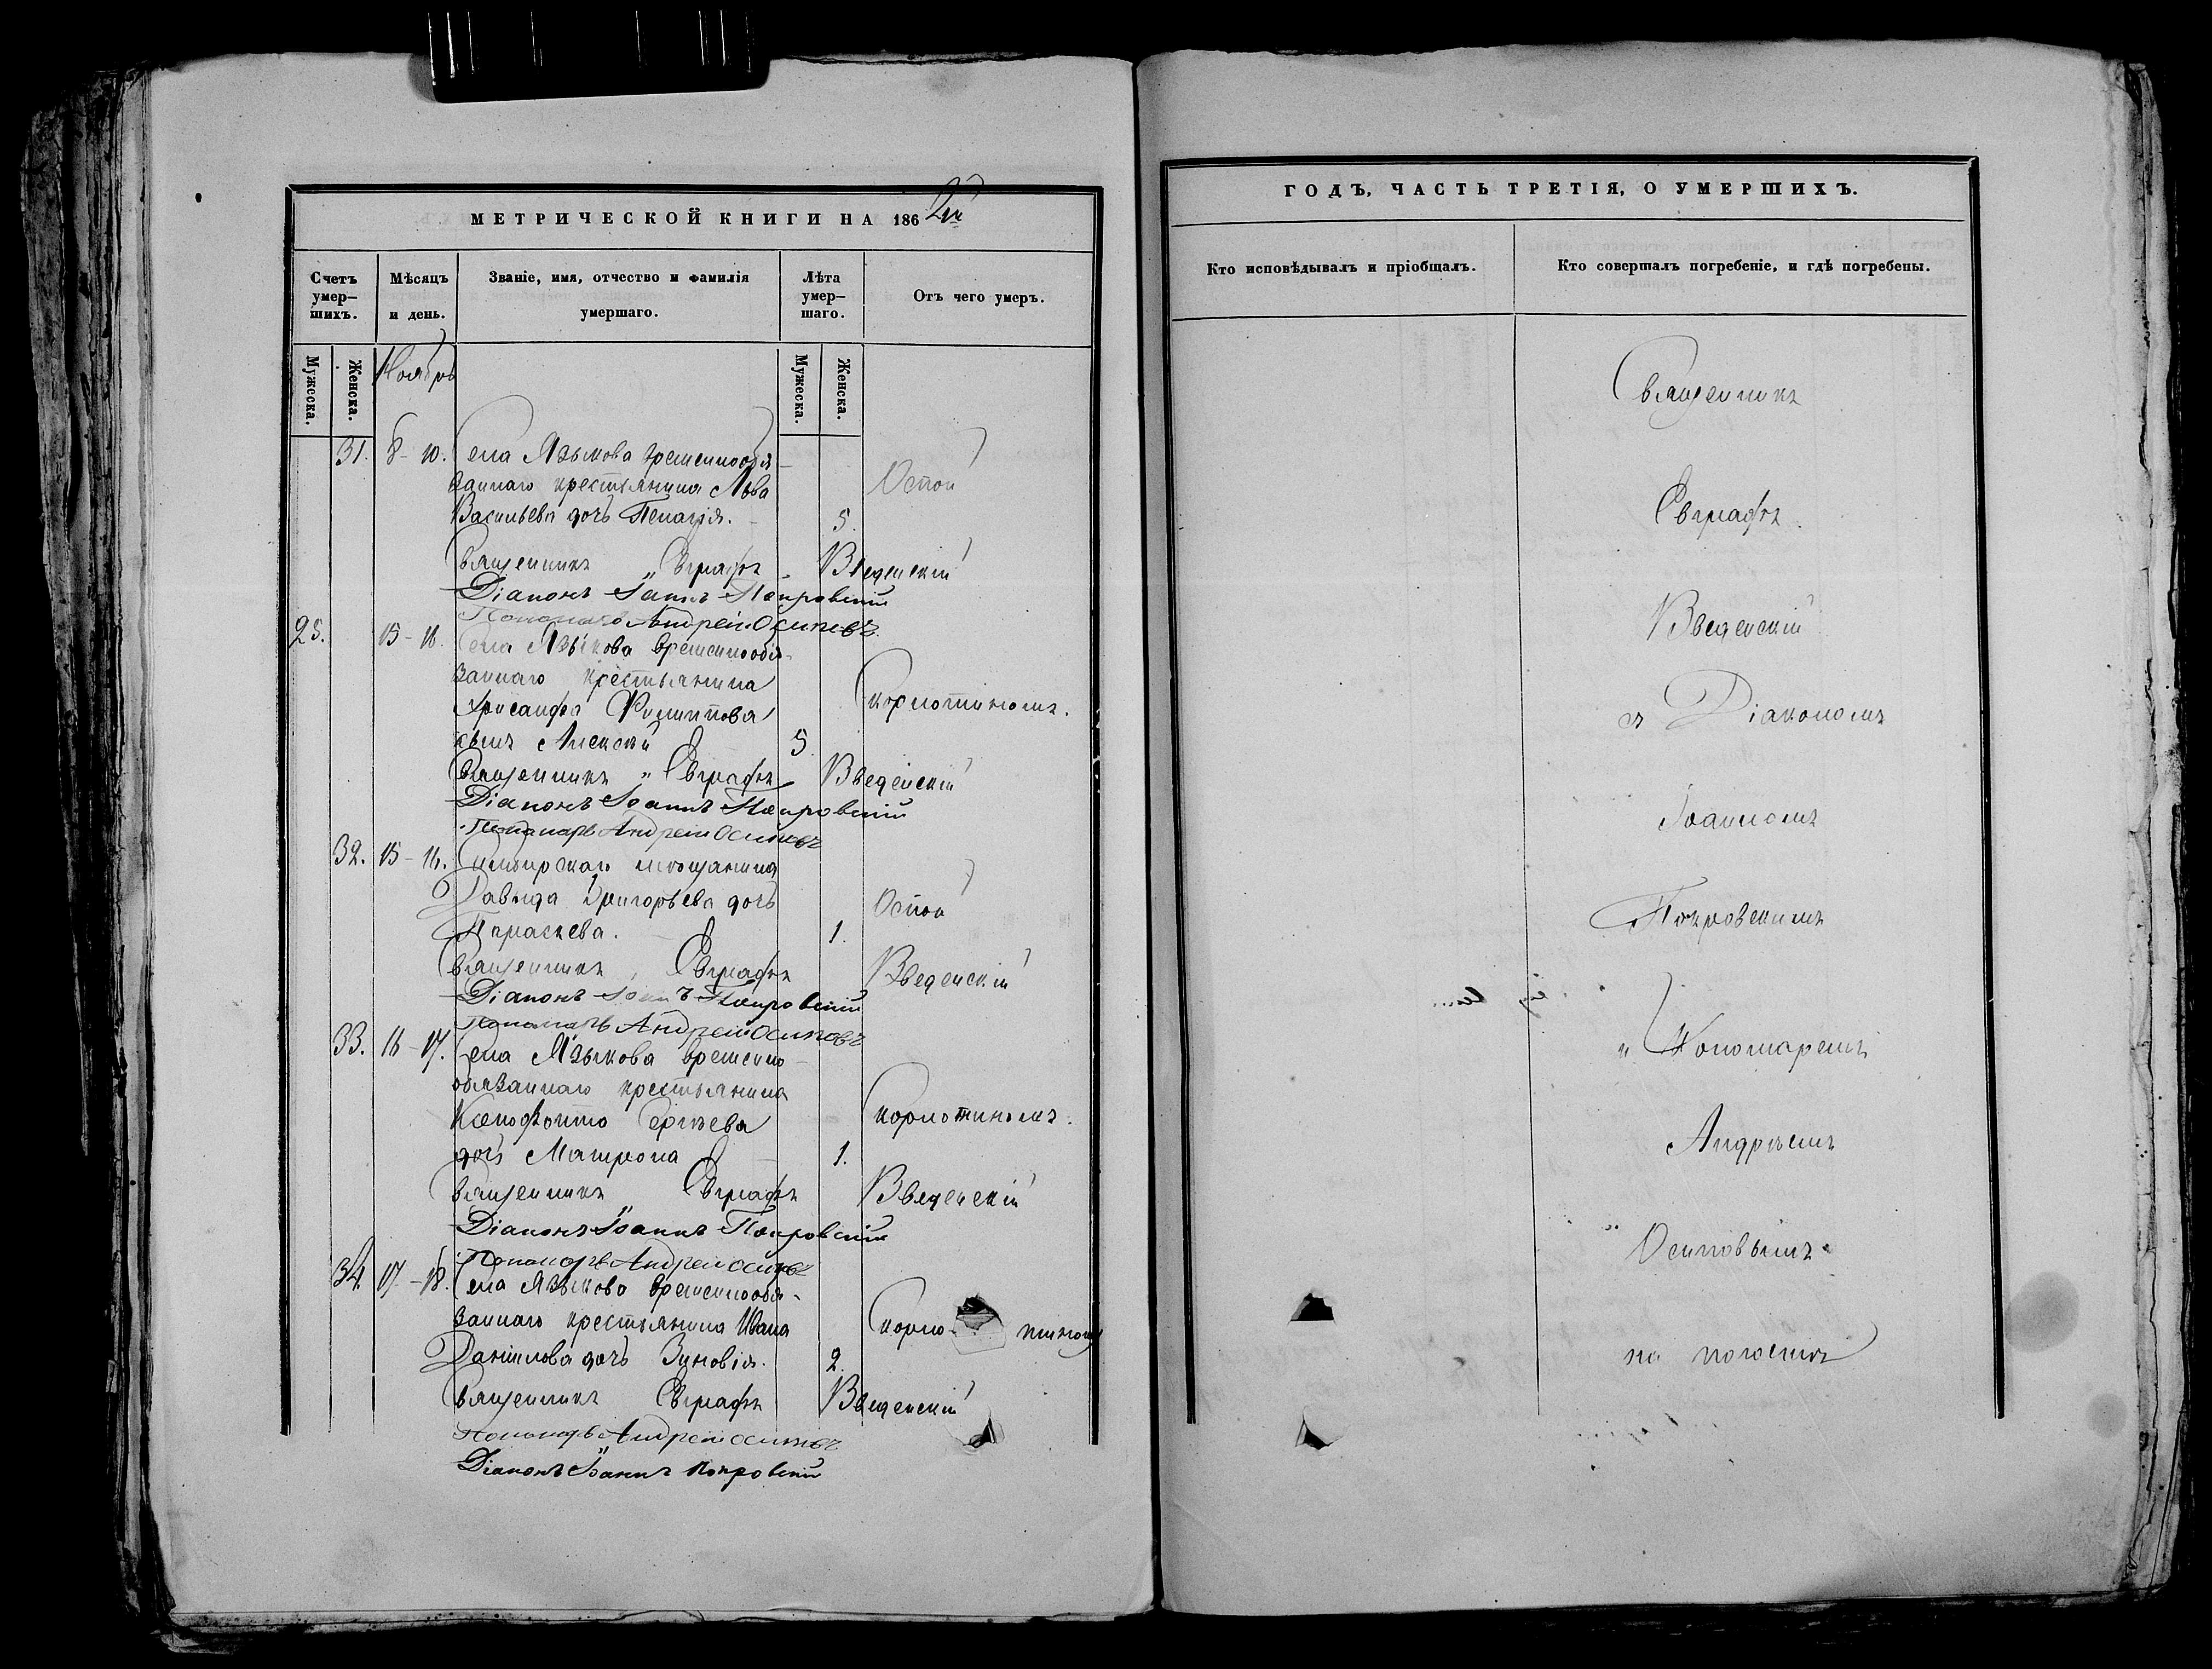 МЕТРИЧЕСКОЙ КНИГИ НА 1862й
Счетъ умер-шихъ.
Мѣсяцъ и день.
Званіе, имя, отчество и фамилія умершаго.
Лѣта умер-шаго.
Отъ чего умеръ.
Мужеска.
Женска.
Ноябрь
Мужеска.
Женска.
31. 8-10. Села Языкова временнообя-
заннаго крестьянина Льва Оспой
Васильева дочь Пелагія. 5.
Священникъ Евграфъ Введенскій
Діаконъ Іоаннъ Покровскій
Пономарь Андрей Осиповъ
25. 15-16. Села Языкова временнообя-
заннаго крестьянина
Хрисанфа Филиппова Скорлотиномъ.
сынъ Алексѣй 5.
Священникъ Евграфъ Введенскій
Діаконъ Іоаннъ Покровскій
Пономарь Андрей Осиповъ
32. 15-16. Симбирскаго мѣщанина
Давыда Григорьева дочь Оспой
Параскева. 1.
Священникъ Евграфъ Введенскій
Діаконъ Іоаннъ Покровскій
Пономарь Андрей Осиповъ
33. 16-17. Села Языкова временно-
обязаннаго крестьянина
Ксенофонта Сергѣева Скорлотиномъ.
дочь Матрона 1.
Священникъ Евграфъ Введенскій
Діаконъ Іоаннъ Покровскій
Пономарь Андрей Осиповъ
34. 17-18. Села Языкова временнообя-
заннаго крестьянина Ивана Скорло-тиномъ
Данилова дочь Зиновія. 2.
Священникъ Евграфъ Введенскій
Пономарь Андрей Осиповъ
Діаконъ Іоаннъ Покровскій
ГОДЪ, ЧАСТЬ ТРЕТІЯ, О УМЕРШИХЪ.
Кто исповѣдывалъ и пріобщалъ.
Кто совершалъ погребеніе, и гдѣ погребены.
Священникъ
Евграфъ
Введенскій
съ Діакономъ
Іоанномъ
Покровскимъ
и Пономаремъ
Андрѣемъ
Осиповымъ
на погостѣ